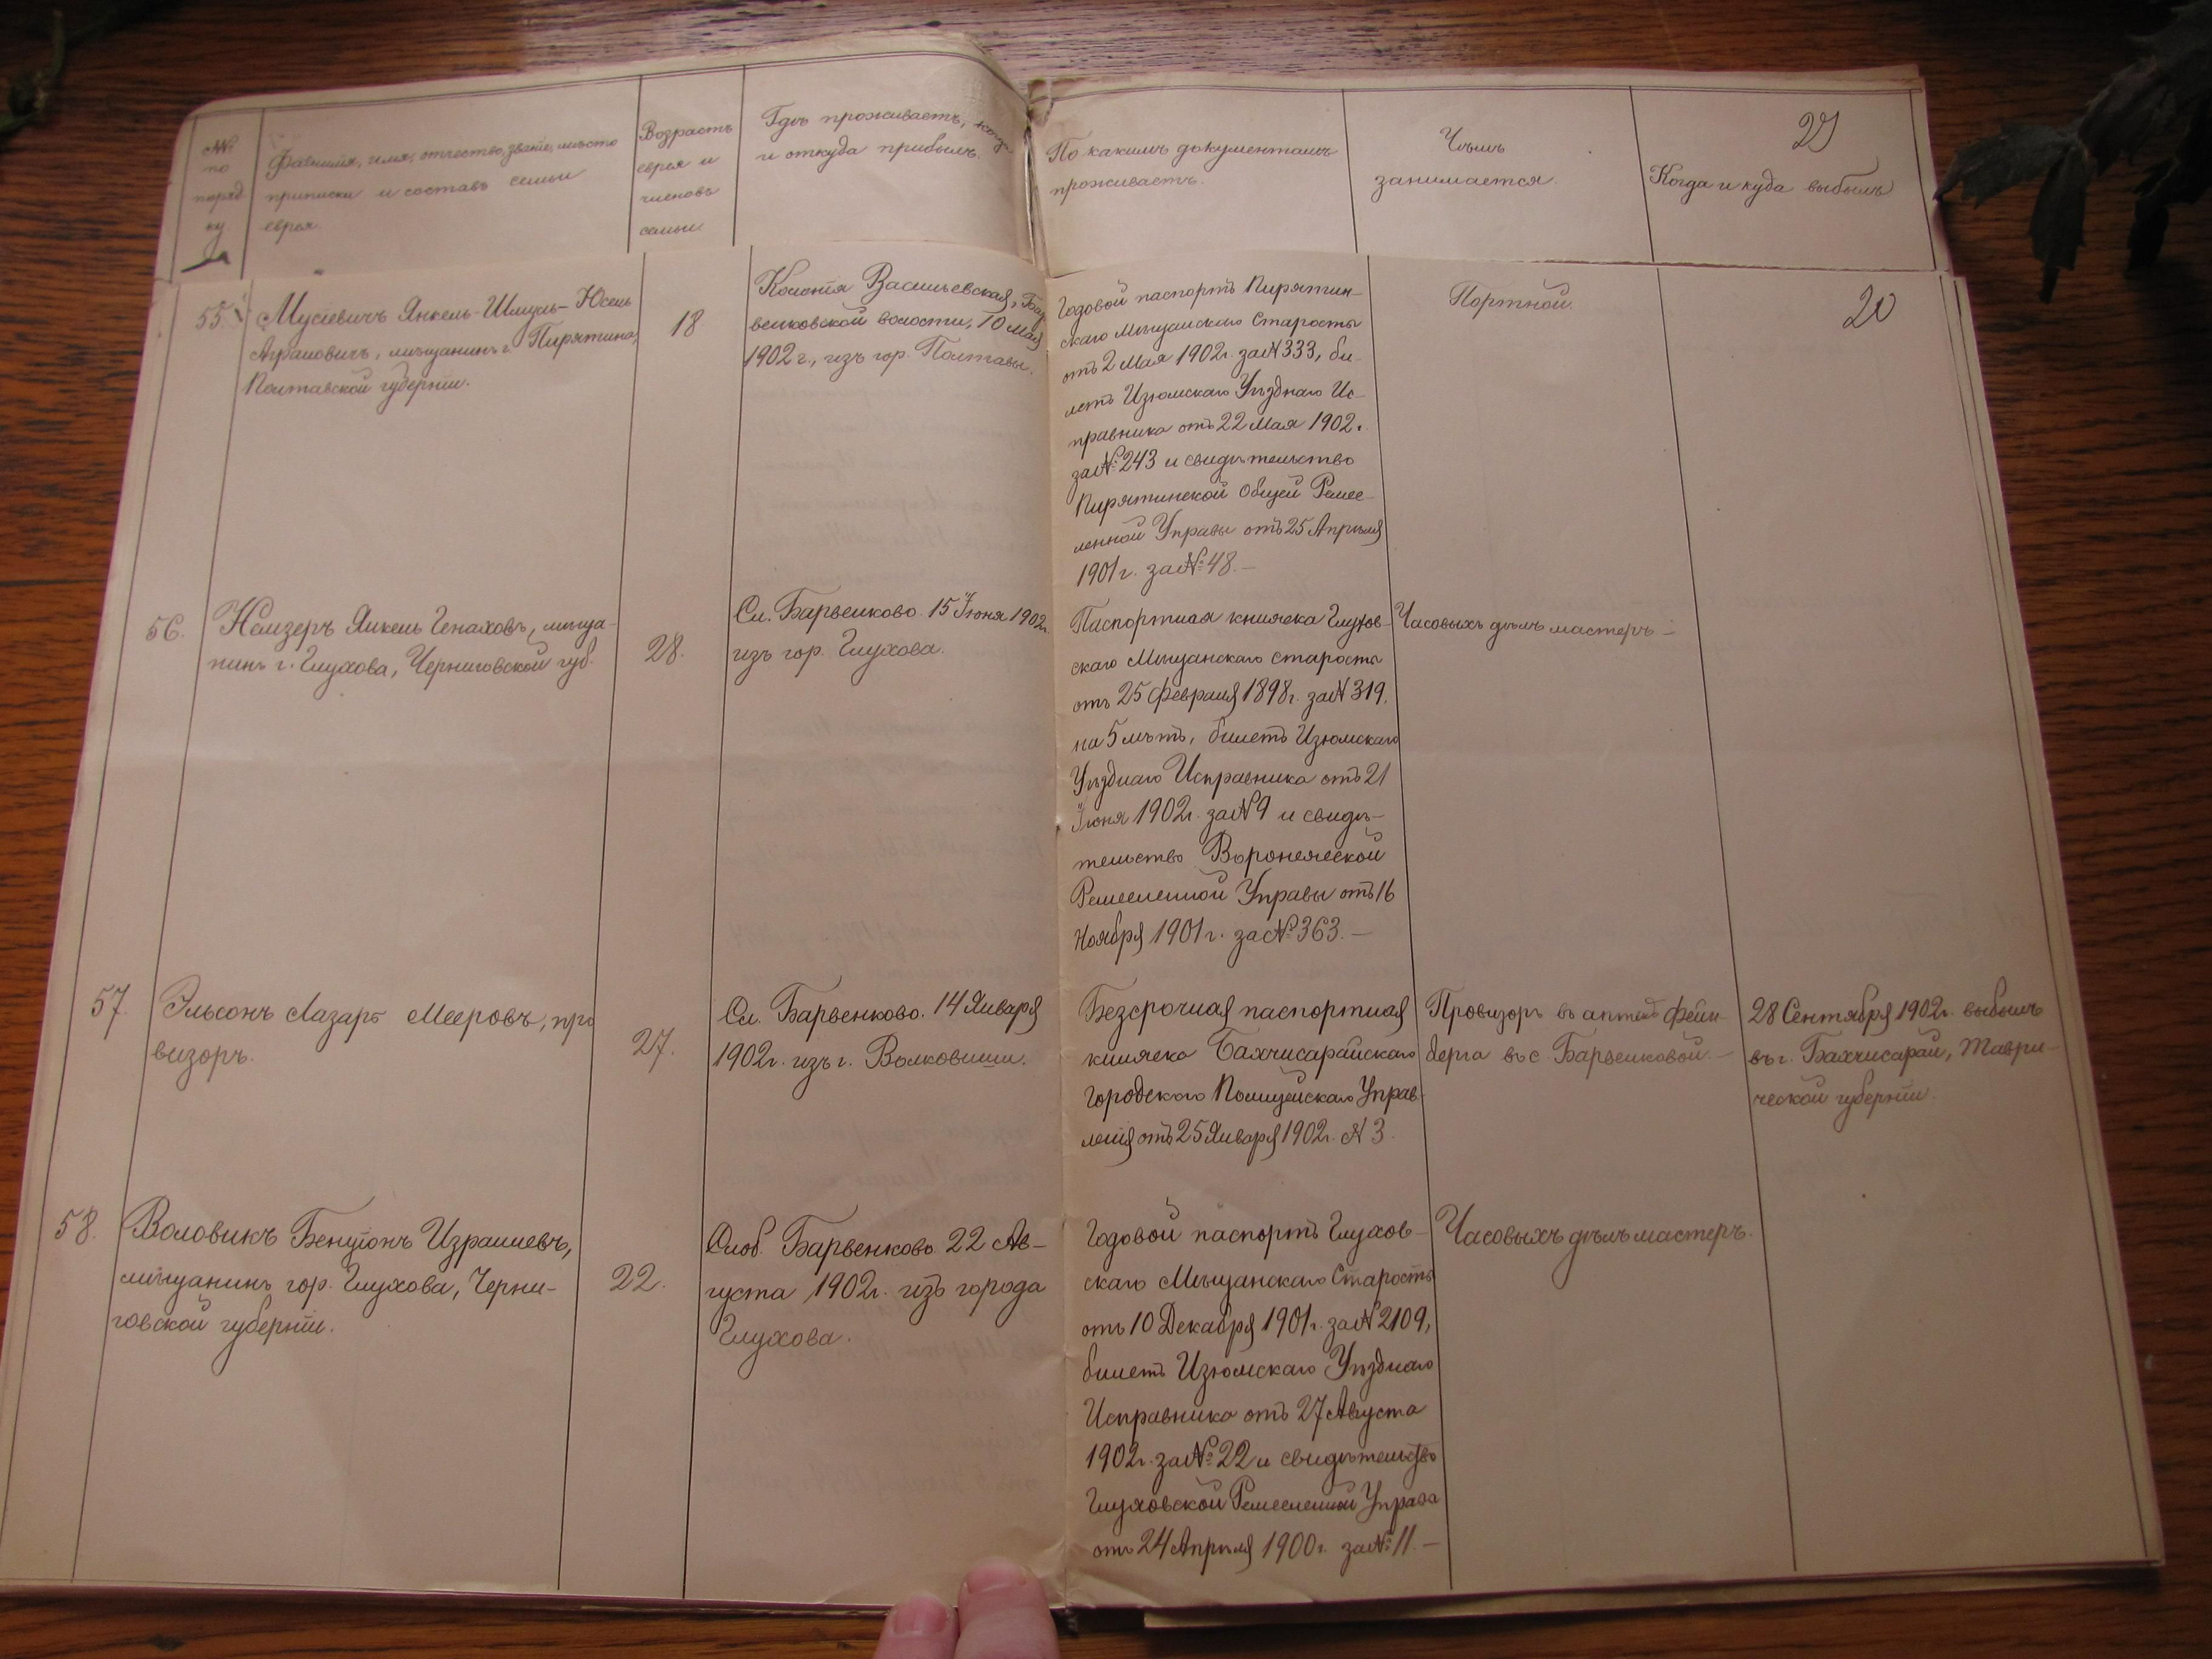 №№ по поряд ку
Фамилія, имя, отчество, званіе, мѣсто
приписки и составъ семьи
еврея.
Возрастъ
еврея и
членовъ
семьи
Гдѣ проживаетъ, когда
и откуда прибылъ.
По какимъ документамъ
проживаетъ.
Чѣмъ
занимается.
Когда и куда выбылъ
55.
Мусіевичъ Янкель-Шмуль-Юсель
мѣщанинъ г. Пирятина,
Полтавской губерніи.
18
Колонія Васильевская, Бар
венковской волости, 10 Мая
1902 г., изъ гор. Полтавы.
Годовой паспортъ Пирятин-
скаго Мѣщанскаго Старосты
отъ 2 Мая 1902 г. за № 333, би-
летъ Изюмскаго Уѣзднаго Ис-
правника отъ 22 Мая 1902 г.
за № 243 и свидѣтельство
Пирятинской Общей Ремес-
ленной Управы отъ 25 Апрѣля
1901 г. за № 48.—
Портной.
20
56.
Немзеръ Янкель Генаховъ, мѣща-
нинъ г. Глухова, Черниговской губ.
28.
Сл. Барвенково. 15 Іюня 1902 г.
изъ гор. Глухова.
Паспортная книжка Глухов-
скаго Мѣщанскаго старосты
отъ 25 Февраля 1898 г. за № 319,
на 5 лѣтъ, билетъ Изюмскаго
Уѣзднаго Исправника отъ 21
Іюня 1902 г. за № 9 и свидѣ-
тельство Воронежской
Ремесленной Управы отъ 16
Ноября 1901 г. за № 363.—
Часовыхъ дѣлъ мастеръ.—
57.
Эльсонъ Лазарь Мееровъ, про
визоръ.
27.
Сл. Барвенково. 14 Января
1902 г. изъ г. Волковишки.
Безсрочная паспортная
книжка Бахчисарайскаго
Городского Полицейскаго Управ-
ленія отъ 25 Января 1902 г. № 3.
Провизоръ въ аптекѣ Фейн-
берга въ с. Барвенковой.—
28 Сентября 1902 г. выбылъ
въ г. Бахчисарай, Таври-
ческой губерніи.
58.
Воловикъ Бенціонъ Израилевъ,
мѣщанинъ гор. Глухова, Черни-
говской губерніи.
22.
Слоб. Барвенково 22 Ав-
густа 1902 г. изъ города
Глухова.
Годовой паспортъ Глухов-
скаго Мѣщанскаго Старосты
отъ 10 Декабря 1901 г. за № 2109,
билетъ Изюмскаго Уѣзднаго
Исправника отъ 27 Августа
1902 г. за № 22 и свидѣтельство
Глуховской Ремесленной Управы
отъ 24 Апрѣля 1900 г. за № 11.—
Часовыхъ дѣлъ мастеръ.